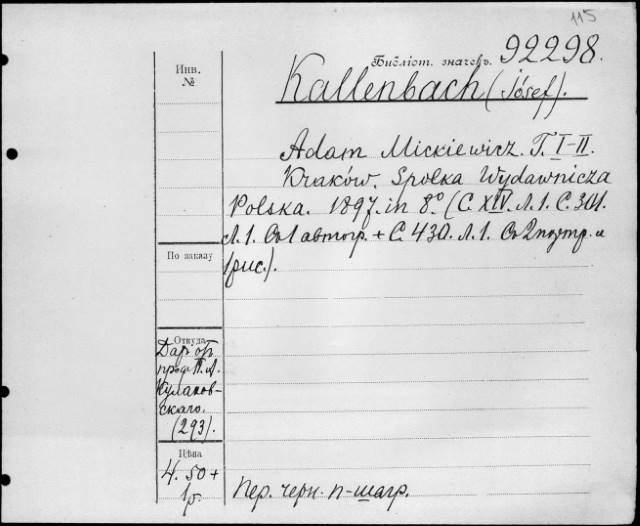 115
Библіот. значекъ. 92298.
Инв.
№
Kallenbach (Józef).
Adam Mickiewicz. T. I-II.
Kraków. Spolka Wydawnicza
Polska. 1897. in 8° (С. XIV. Л. 1. С. 301.
Л. 1. Съ 1 автогр. + С. 430. Л. 1. Съ 2 портр. и
1 рис.).
По заказу
Откуда
Даръ отъ
проф. П. А.
Кулаков-
скаго.
(293).
Цѣна
4. 50 +
1 р.
Пер. черн. п-шагр.